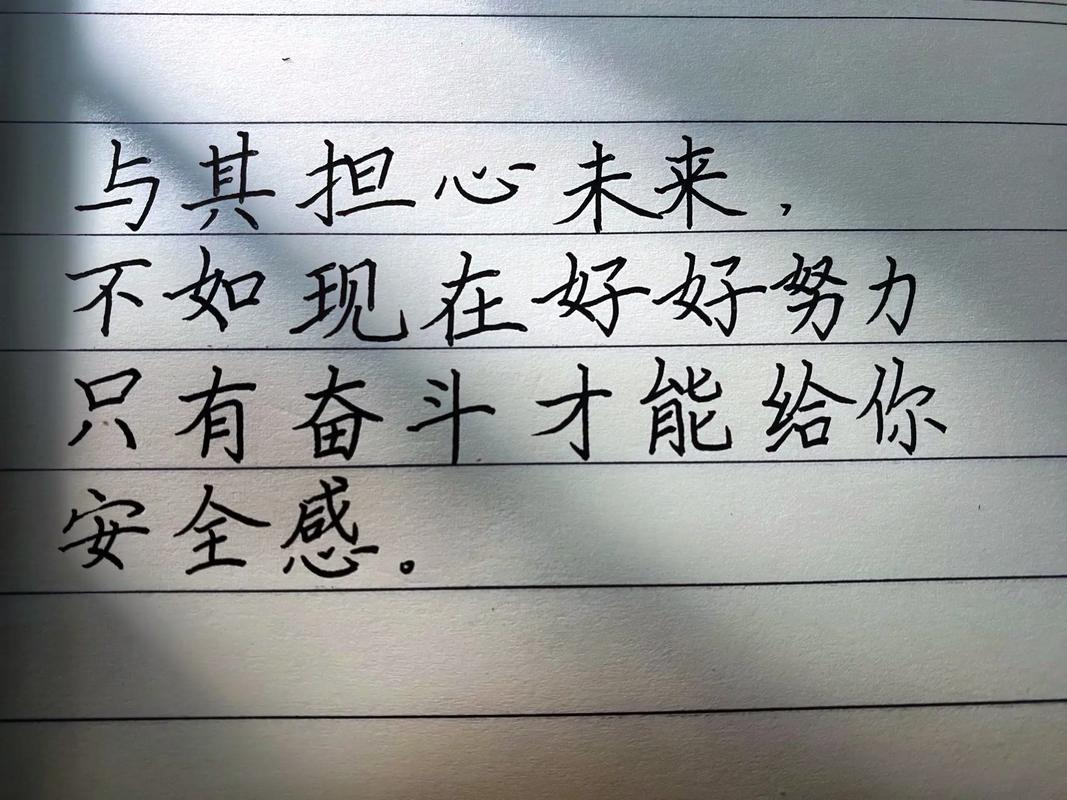 与其担心未来，
不如现在好好努力
只有奋斗才能给你
安全感。